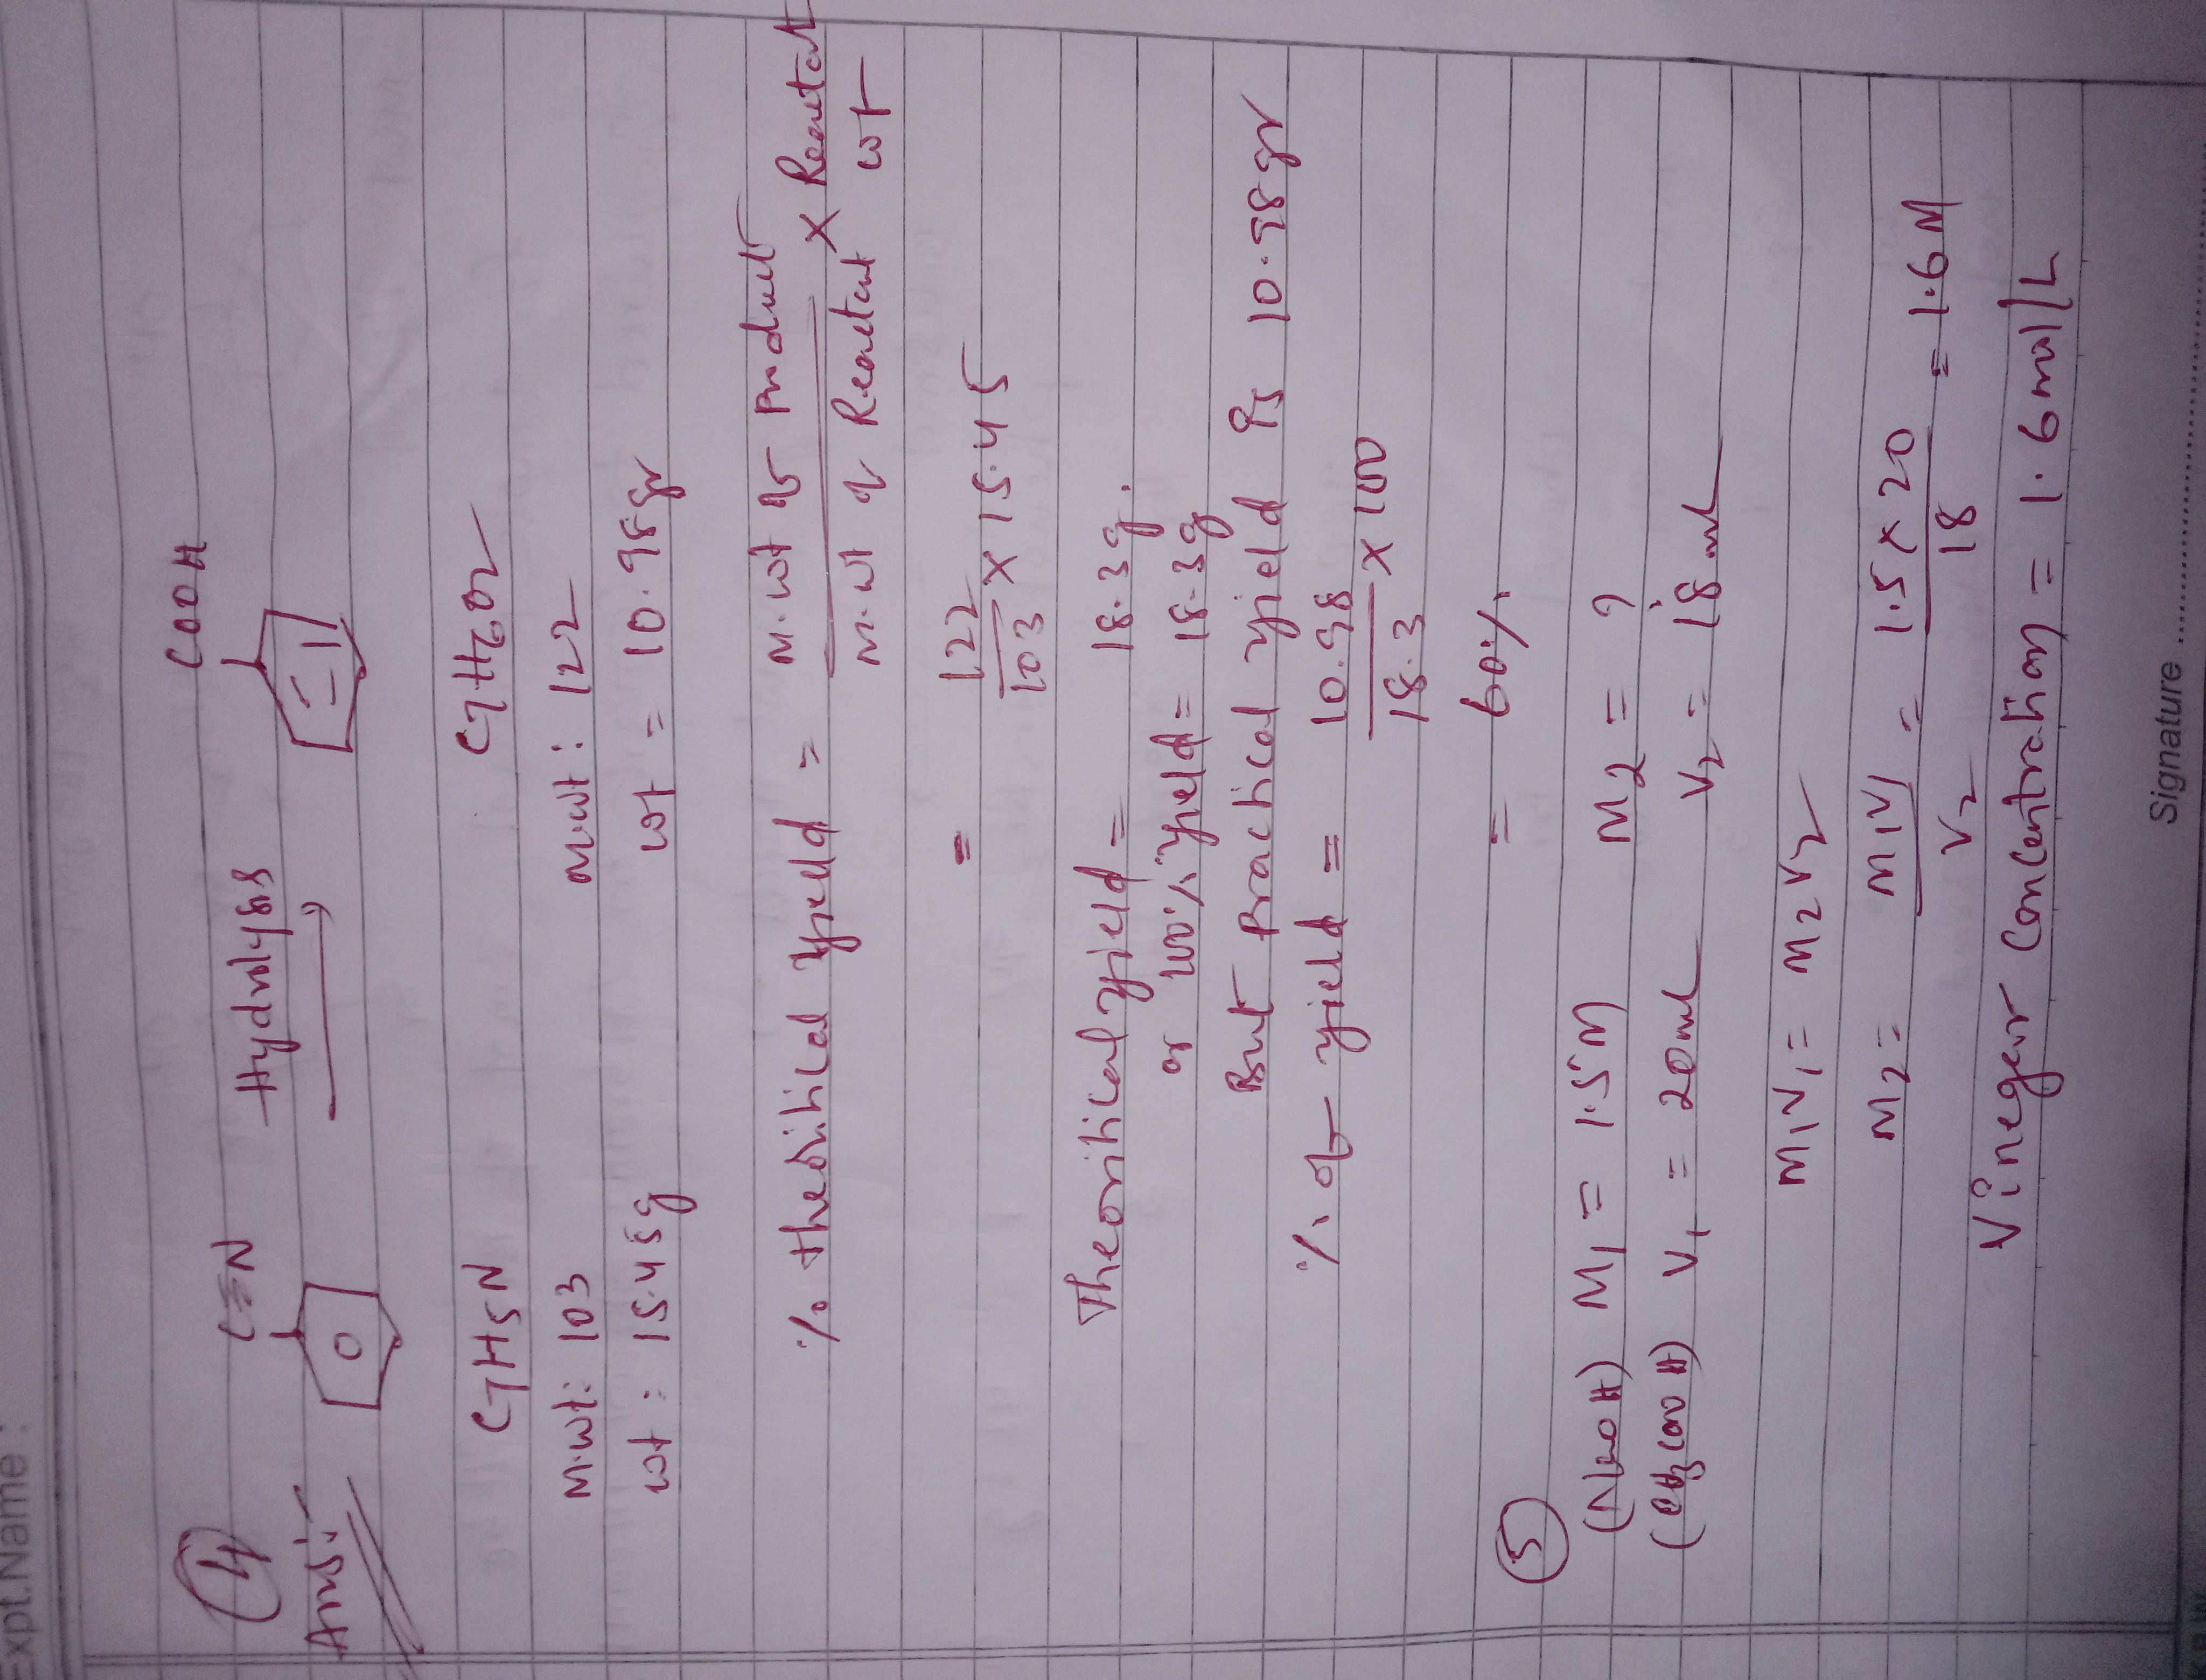 Expt.Name :
4
Ans:-
C≡N
Hydrolysis
COOH
C7H5N
C7H6O2
M.wt: 103
M.wt: 122
wt : 15.45g
wt = 10.98gr
% theoritical yield = M.wt of product / M.wt of Reactant X Reactant wt
= 122/103 X 15.45
Theoritical yield = 18.3g.
or 100% yield = 18.3g
But practical yield is 10.98gr
% of yield = 10.98/18.3 X 100
= 60%
5
(NaOH) M1 = 1.5M M2 = ?
(CH3COOH) V1 = 20ml V2 = 18ml
M1V1 = M2V2
M2 = M1V1/V2 = 1.5 x 20/18 = 1.6M
Vineger Concentration = 1.6mol/L
Signature